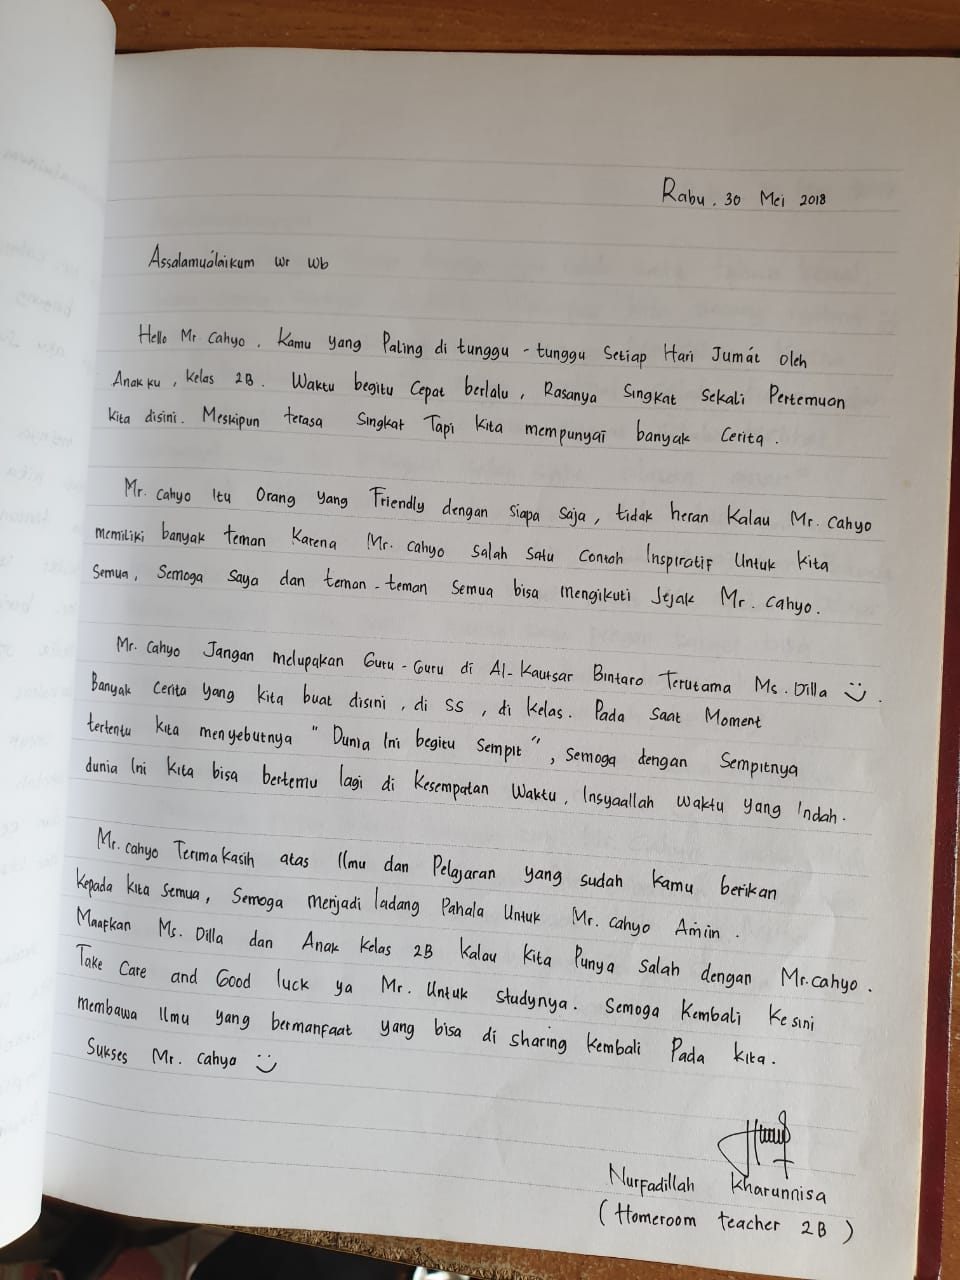 Rabu, 30 Mei 2018
Assalamuálaikum wr wb
Hello Mr cahyo, Kamu yang Paling di tunggu - tunggu Setiap Hari Jumát oleh
Anakku, kelas 2B. Waktu begitu Cepat berlalu, Rasanya Singkat Sekali Pertemuan
kita disini. Meskipun terasa Singkat Tapi kita mempunyai banyak Cerita.
Mr. cahyo Itu Orang yang Friendly dengan Siapa Saja, tidak heran Kalau Mr. cahyo
memiliki banyak teman Karena Mr. cahyo Salah Satu Contoh Inspiratif Untuk kita
Semua, Semoga Saya dan teman - teman Semua bisa mengikuti Jejak Mr. cahyo.
Mr. cahyo Jangan melupakan Guru - Guru di Al - Kautsar Bintaro Terutama Ms. Dilla :).
Banyak Cerita yang kita buat disini, di SS, di kelas. Pada Saat Moment
tertentu kita menyebutnya " Dunia Ini begitu Sempit ", Semoga dengan Sempitnya
dunia Ini kita bisa bertemu lagi di Kesempatan Waktu, Insyaallah waktu yang Indah.
Mr. cahyo Terimakasih atas Ilmu dan Pelajaran yang sudah kamu berikan
kepada kita Semua, Semoga menjadi ladang Pahala Untuk Mr. cahyo Amin.
Maafkan Ms. Dilla dan Anak kelas 2B kalau kita Punya Salah dengan Mr. cahyo.
Take Care and Good luck ya Mr. Untuk studynya. Semoga Kembali Kesini
membawa Ilmu yang bermanfaat yang bisa di sharing kembali Pada kita.
Sukses Mr. cahyo :)
Nurfadillah Kharunnisa
( Homeroom teacher 2B )